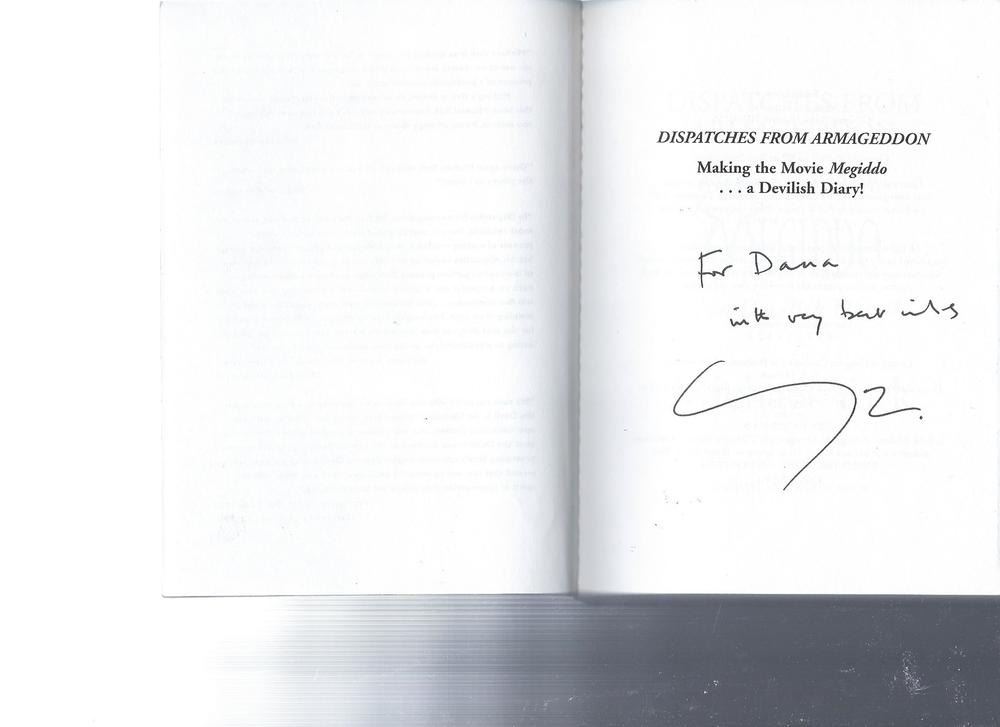 DISPATCHES FROM ARMAGEDDON
Making the Movie Megiddo
. . . a Devilish Diary!
For Dana
with very best wishes